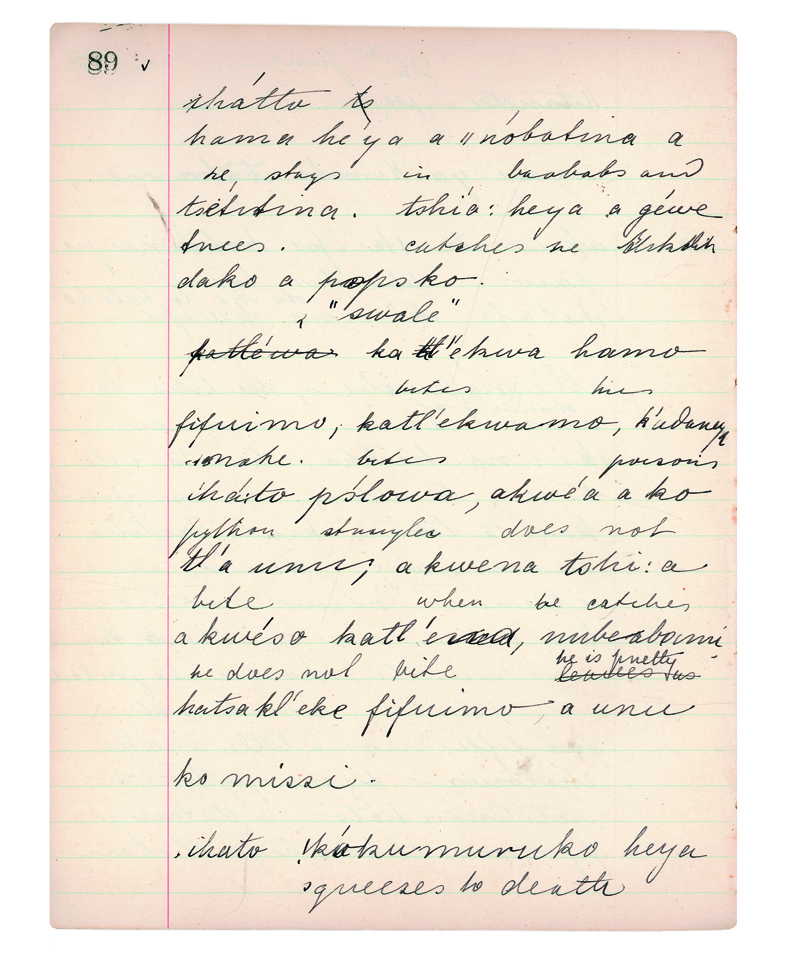 89 v
ihátto
hama héya a "nóbotina a
he, stays in baobabs and
tsétitina. tshía: heya a géwe
trees. catches he
dako a popsko.
"swale"
patléwa ka tl'ekwa hamo
bites his
fifuimo, katl'ekwamo, k'adaney
snake. bites poisons
iháto pólowa, akwéa a ko
python strangles does not
tl'a unu; akwena tshi: a
bite when he catches
akwéso katl'e, nubeabami
he does not bite he is pretty
leaves us
hatsakl'eke fifuimo a unu
ko missi.
ikato kókumuruko heya
squeezes to death